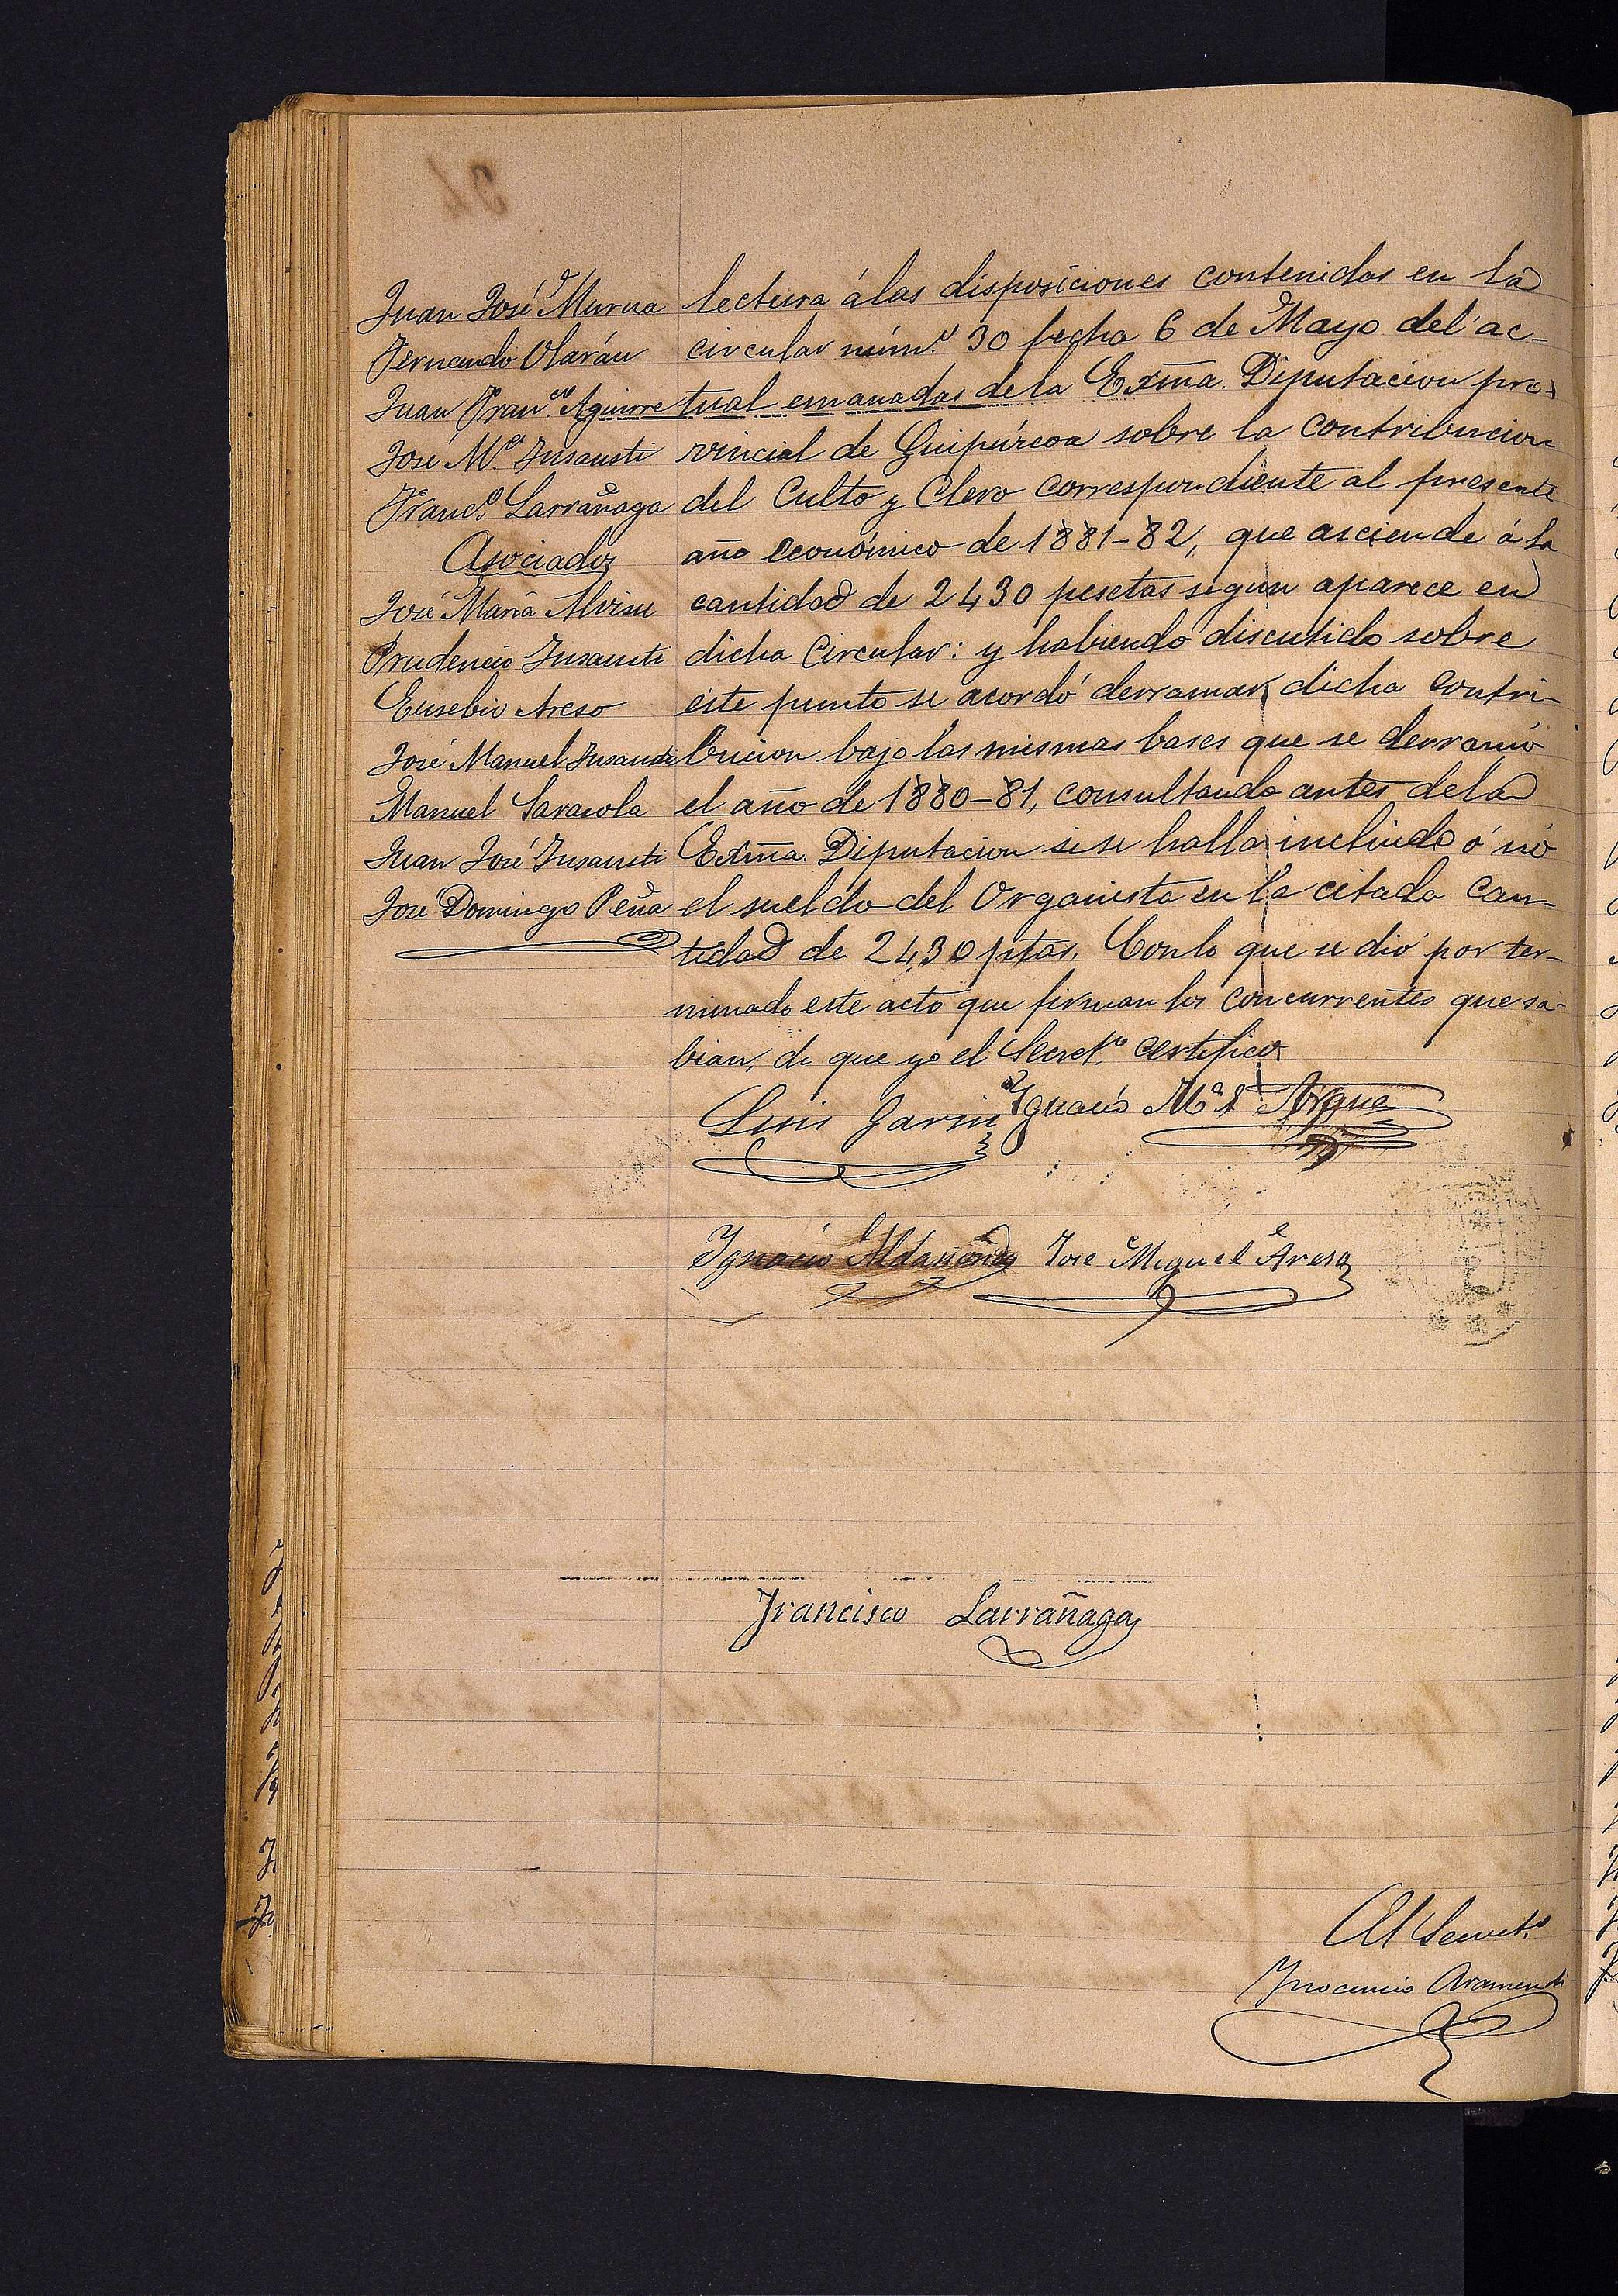 Juan José Murua
Fernando Olarán
Juan Fran.co Aguirre
José M.a Insausti
Franc.o Larrañaga
Asociados
José María Alvisu
Prudencio Insausti
Eusebio Areso
José Manuel Insausti
Manuel Sarasola
Juan José Insausti
José Domingo Peña
lectura á las disposiciones contenidas en la
circular núm.o 30 fecha 6 de Mayo del ac-
tual emanadas de la Exma. Diputacion pro-
vincial de Guipúzcoa sobre la contribucion
del Culto y Clero correspondiente al presente
año económico de 1881-82, que asciende á la
cantidad de 2430 pesetas segun aparece en
dicha Circular: y habiendo discutido sobre
éste punto se acordó derramar dicha contri-
bucion bajo las mismas bases que se derramó
el año de 1880-81, consultando antes de la
Exma. Diputacion si se halla incluido ó nó
el sueldo del Organista en la citada can-
tidad de 2430 ptas. Con lo que se dió por ter-
minado este acto que firman los concurrentes que sa-
bian, de que yo el Secret.o certifico
Luis Garin Ignacio M.a
Ignacio José Miguel Areso
Francisco Larrañaga
El Secret.o
Inocencio Aramendi